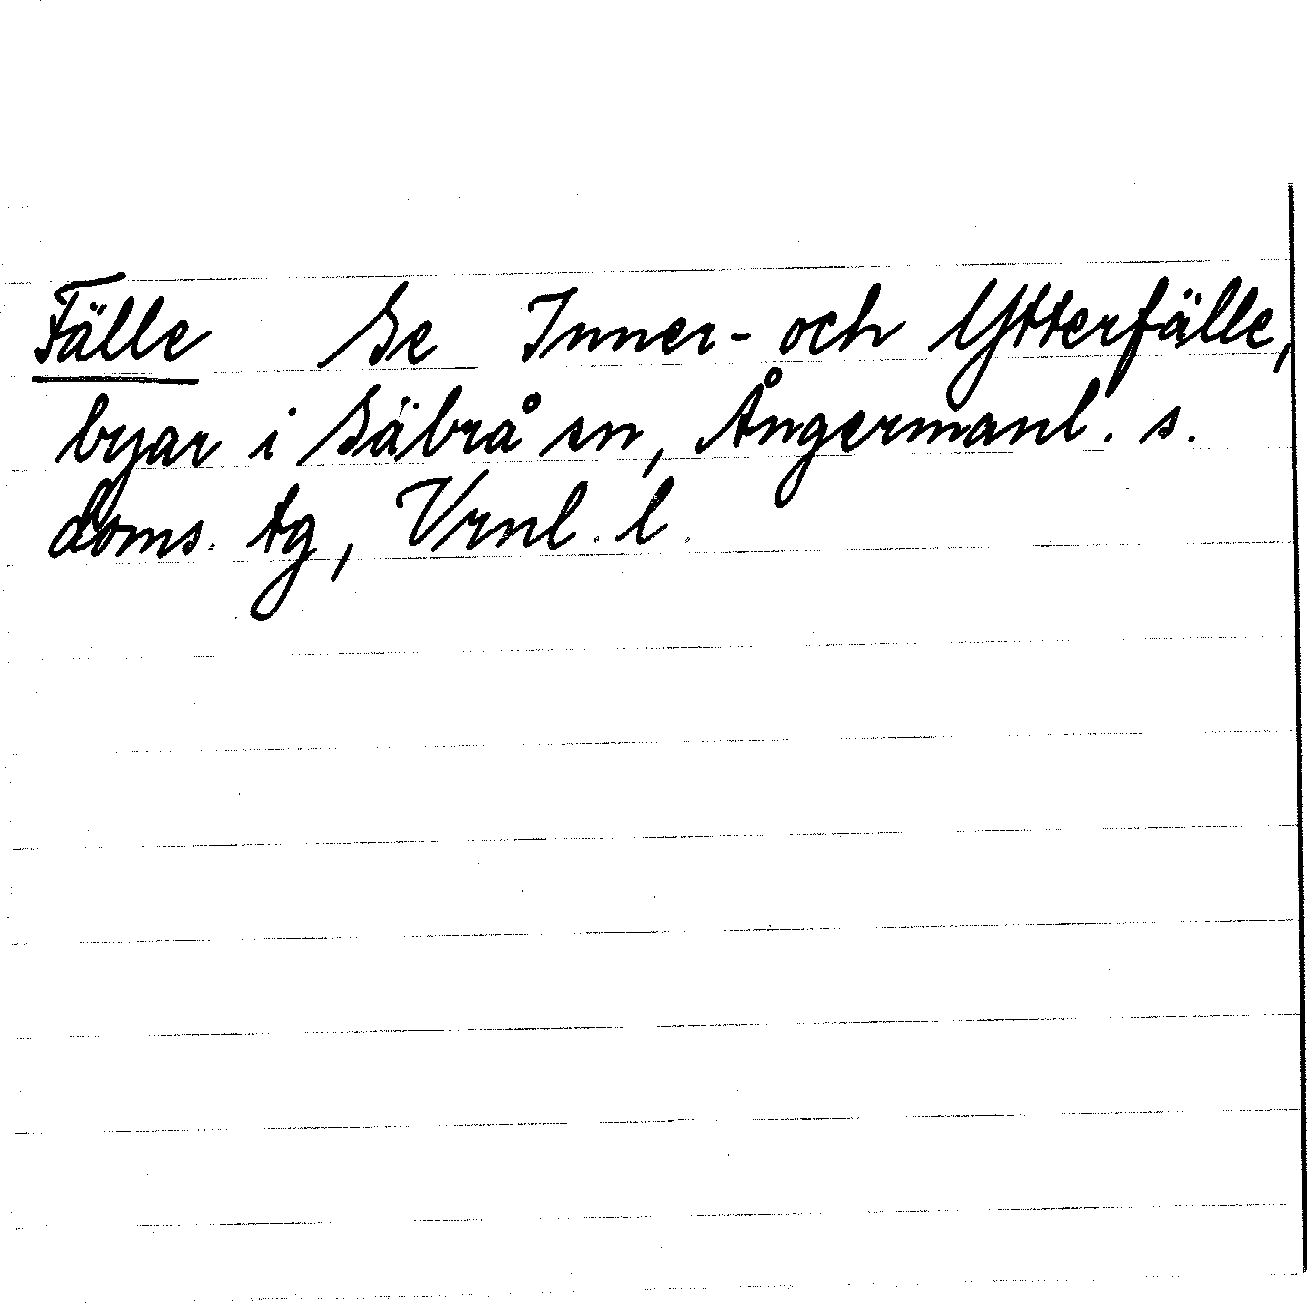 Fälle Se Inner- och Ytterfälle,
byar i Säbrå sn, Ångermanl. s.
doms. tg, Vrnl. l.